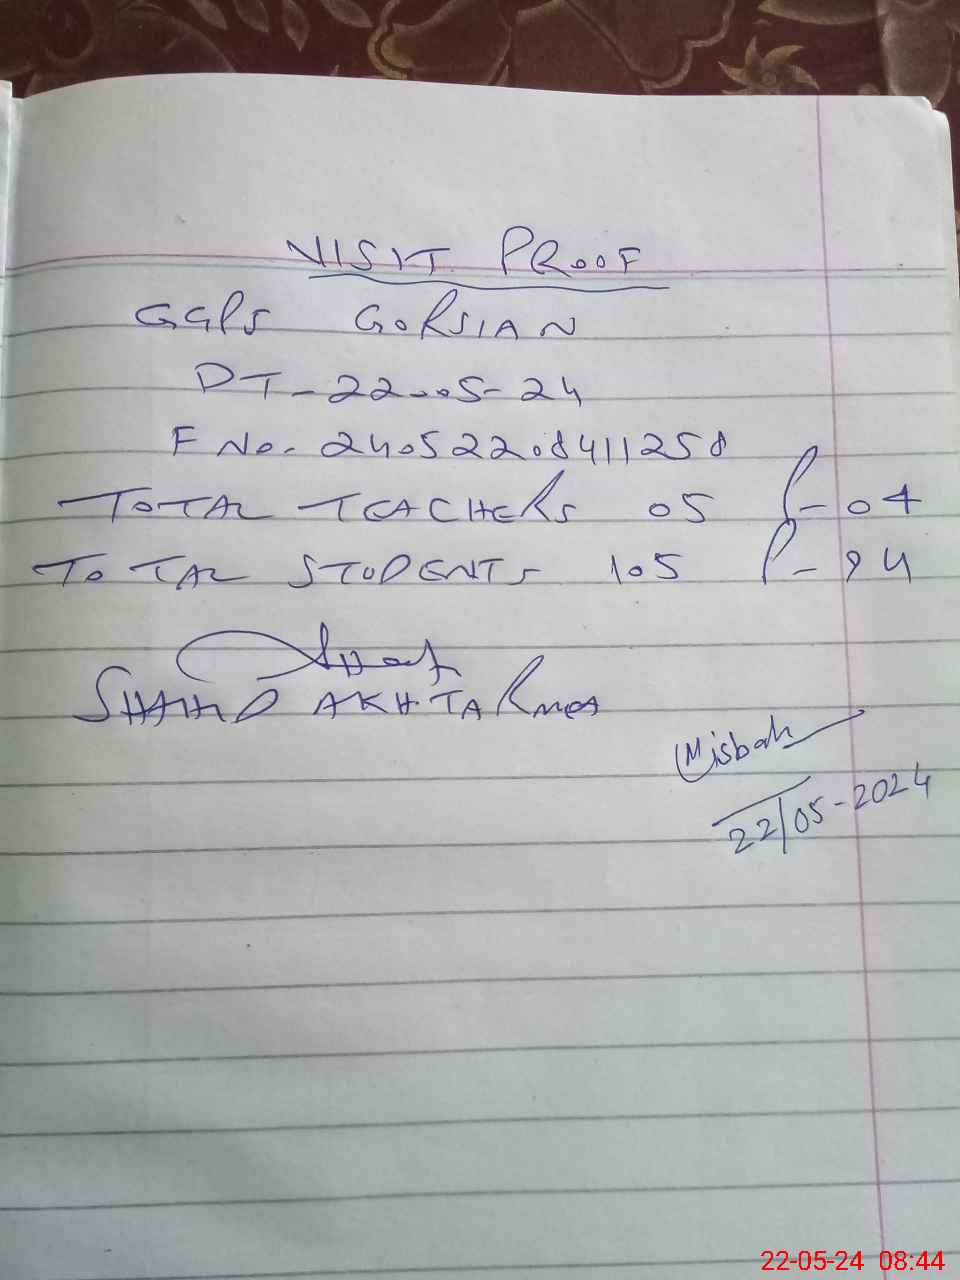 VISIT PROOF
GGPS GORSIAN
DT-22-05-24
F No. 24052208411258
TOTAL TEACHERS 05 P-04
TOTAL STUDENTS 105 P-94
SHAHID AKHTAR MEA
Misbah
22/05-2024
22-05-24 08:44